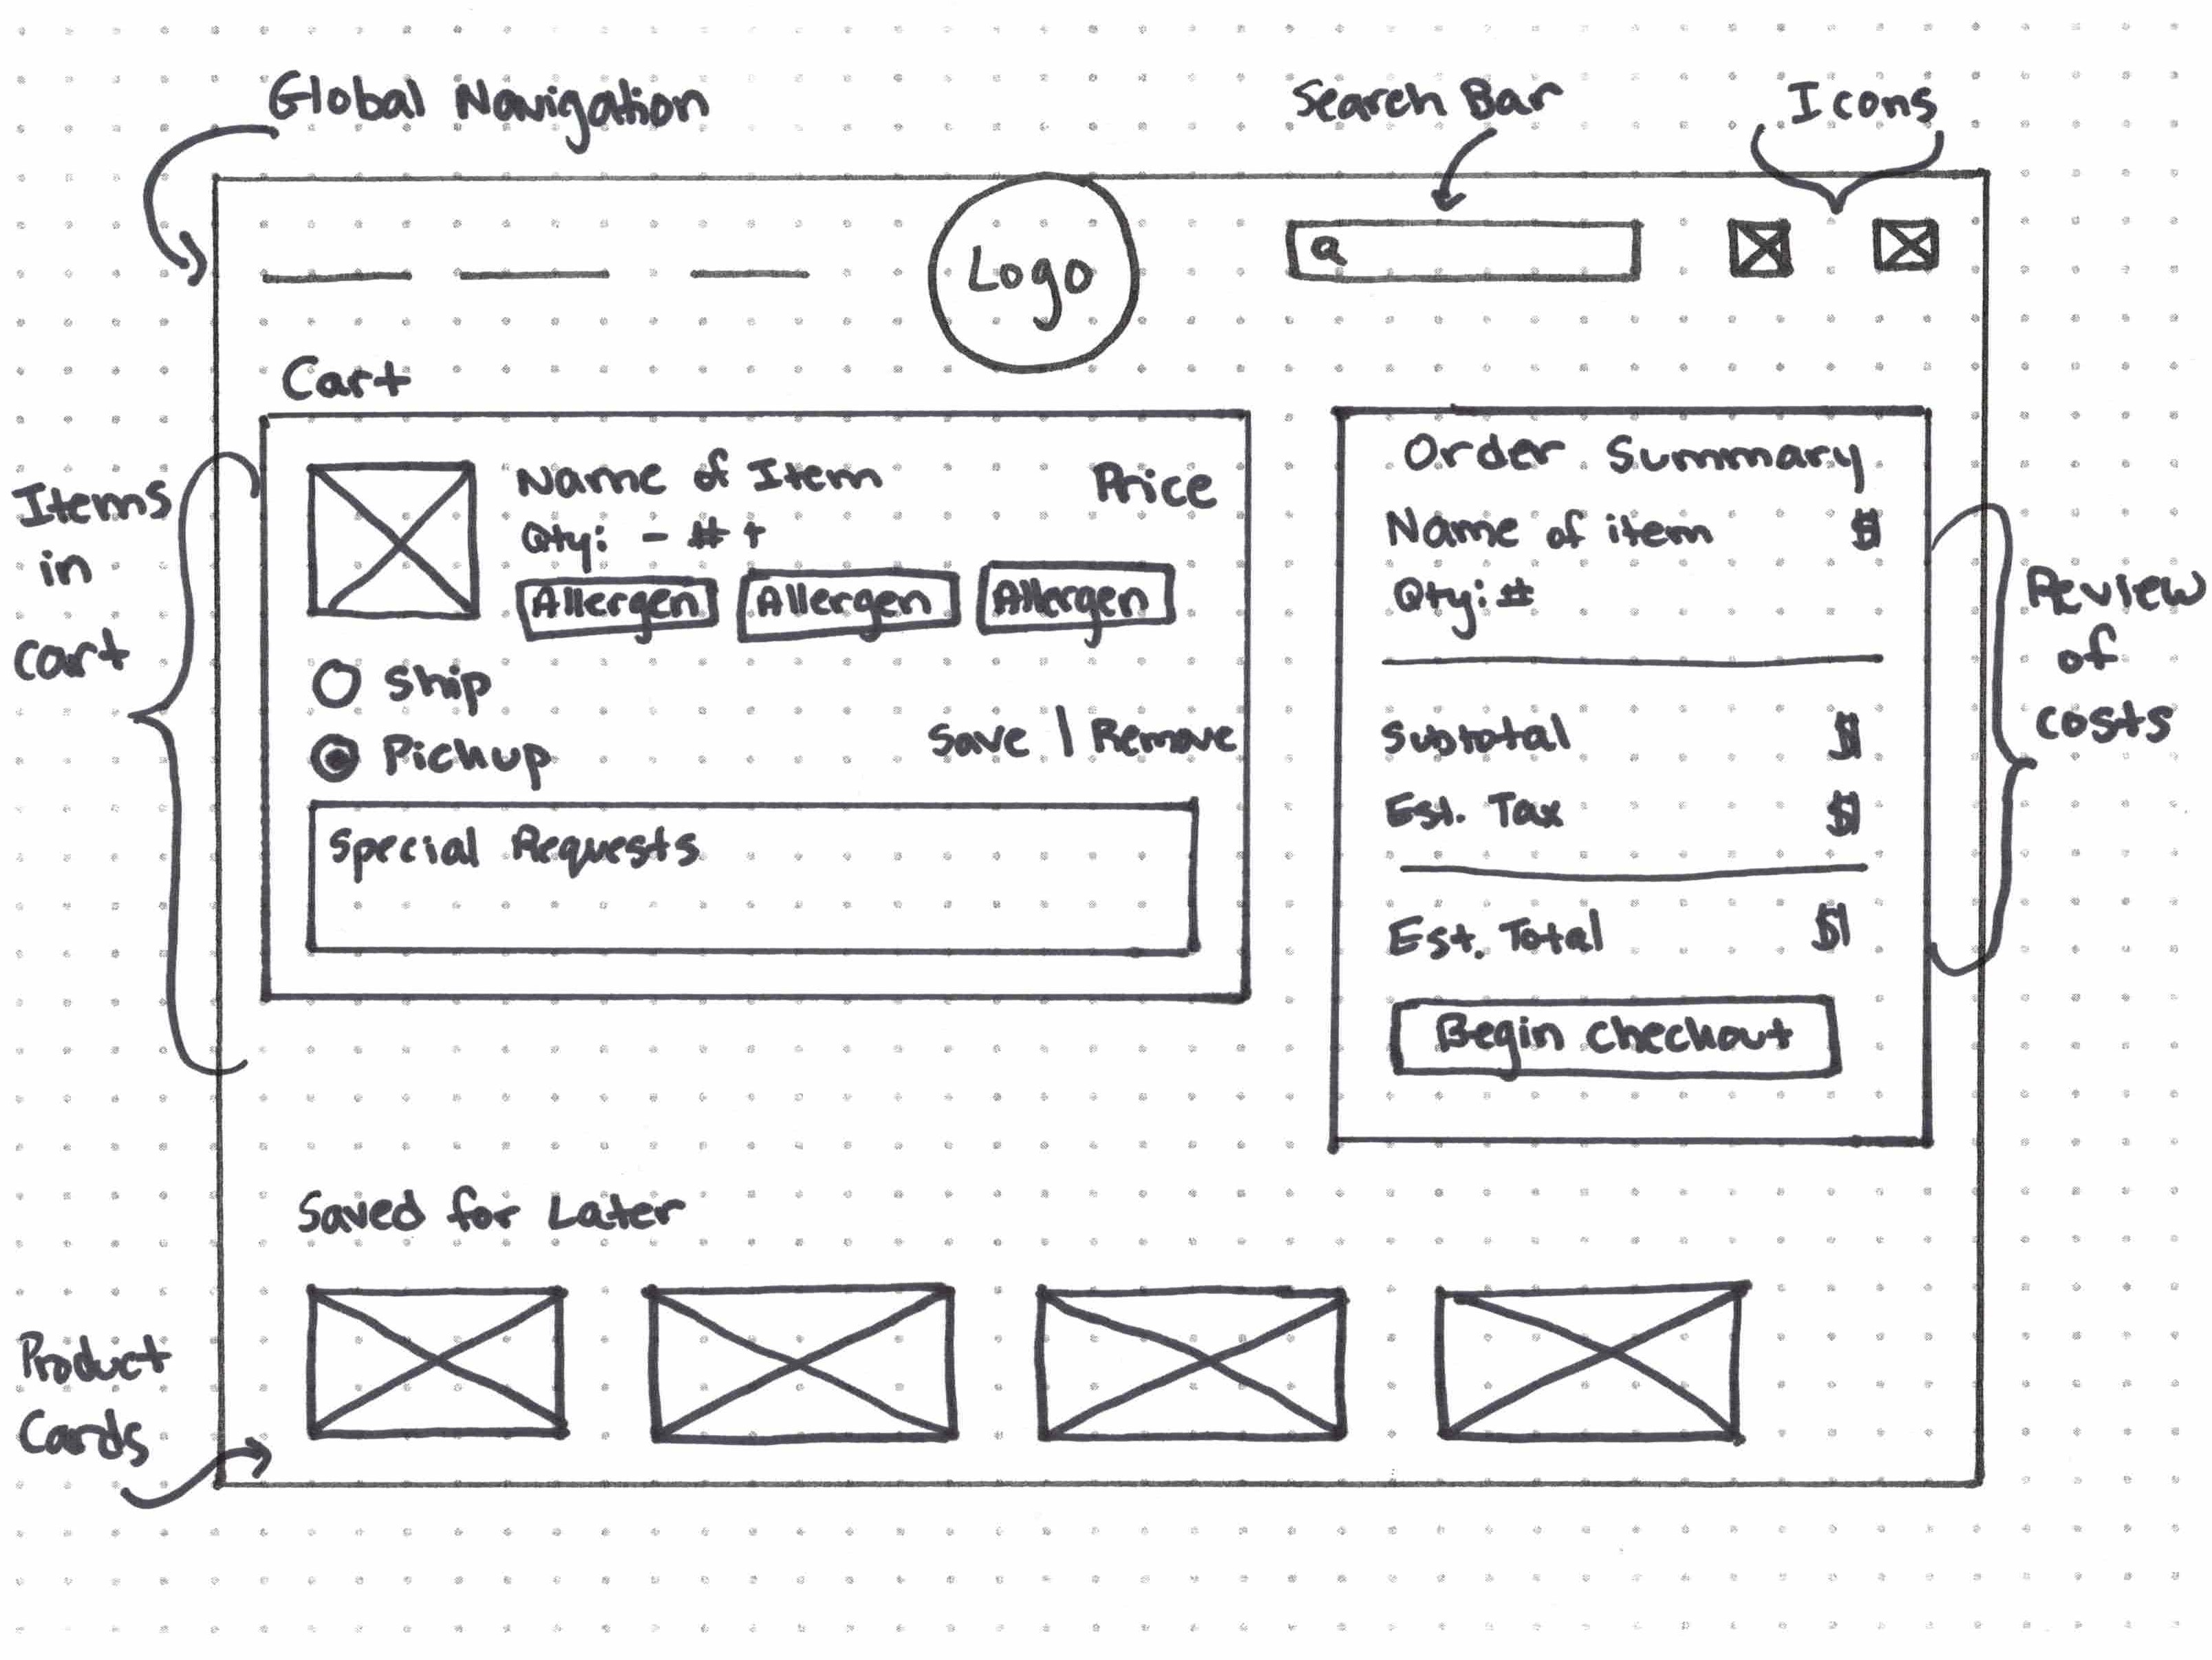 Global Navigation
Search Bar
Icons
Logo
Q
Cart
Items
in
cart
Name of Item
Price
Qty: - # +
Allergen Allergen Allergen
Ship
Pickup
Save | Remove
Special Requests
Order Summary
Name of item $
Qty: #
Subtotal $
Est. Tax $
Est. Total $
Begin Checkout
Review
of
costs
Saved for Later
Product
Cards